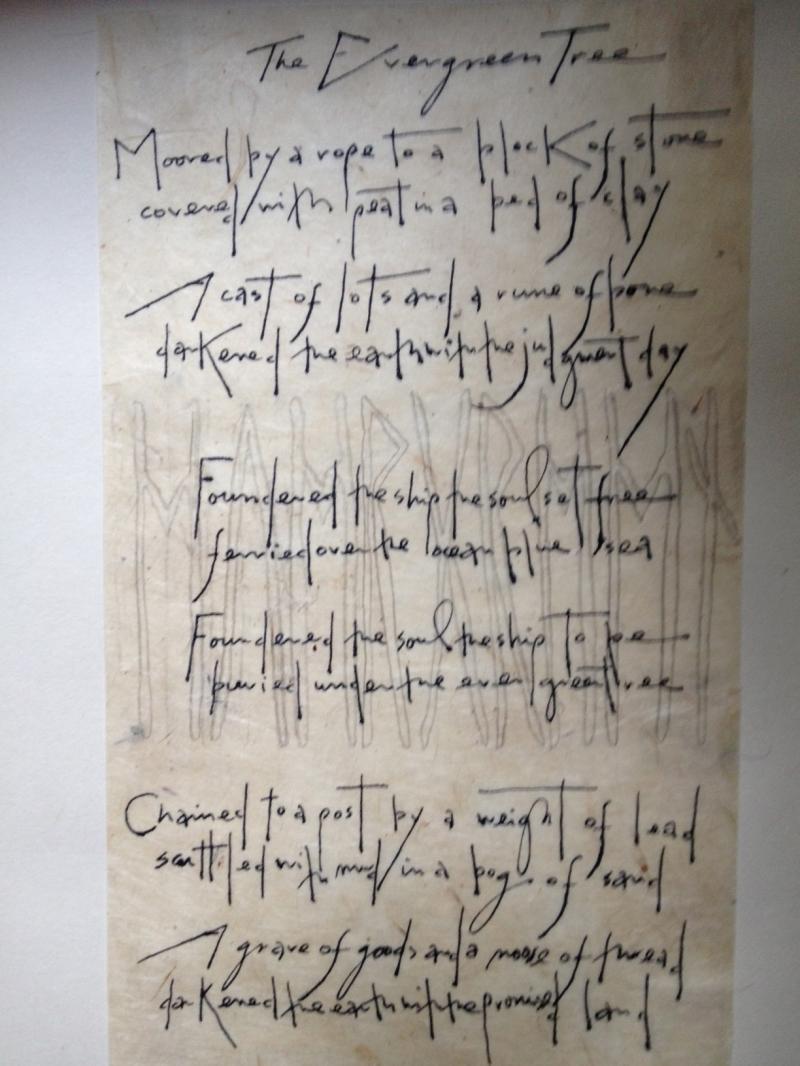 The Evergreen Tree
Moored by a rope to a block of stone
covered with peat in a bed of clay
A cast of lots and a rune of bone
darkened the earth with the judgment day
Foundered the ship the soul set free
ferried over the ocean blue sea
Foundered the soul the ship to be
buried under the evergreen tree
Chained to a post by a weight of lead
scuttled with mud in a bog of sand
A grave of goods and a noose of thread
darkened the earth with the promised land